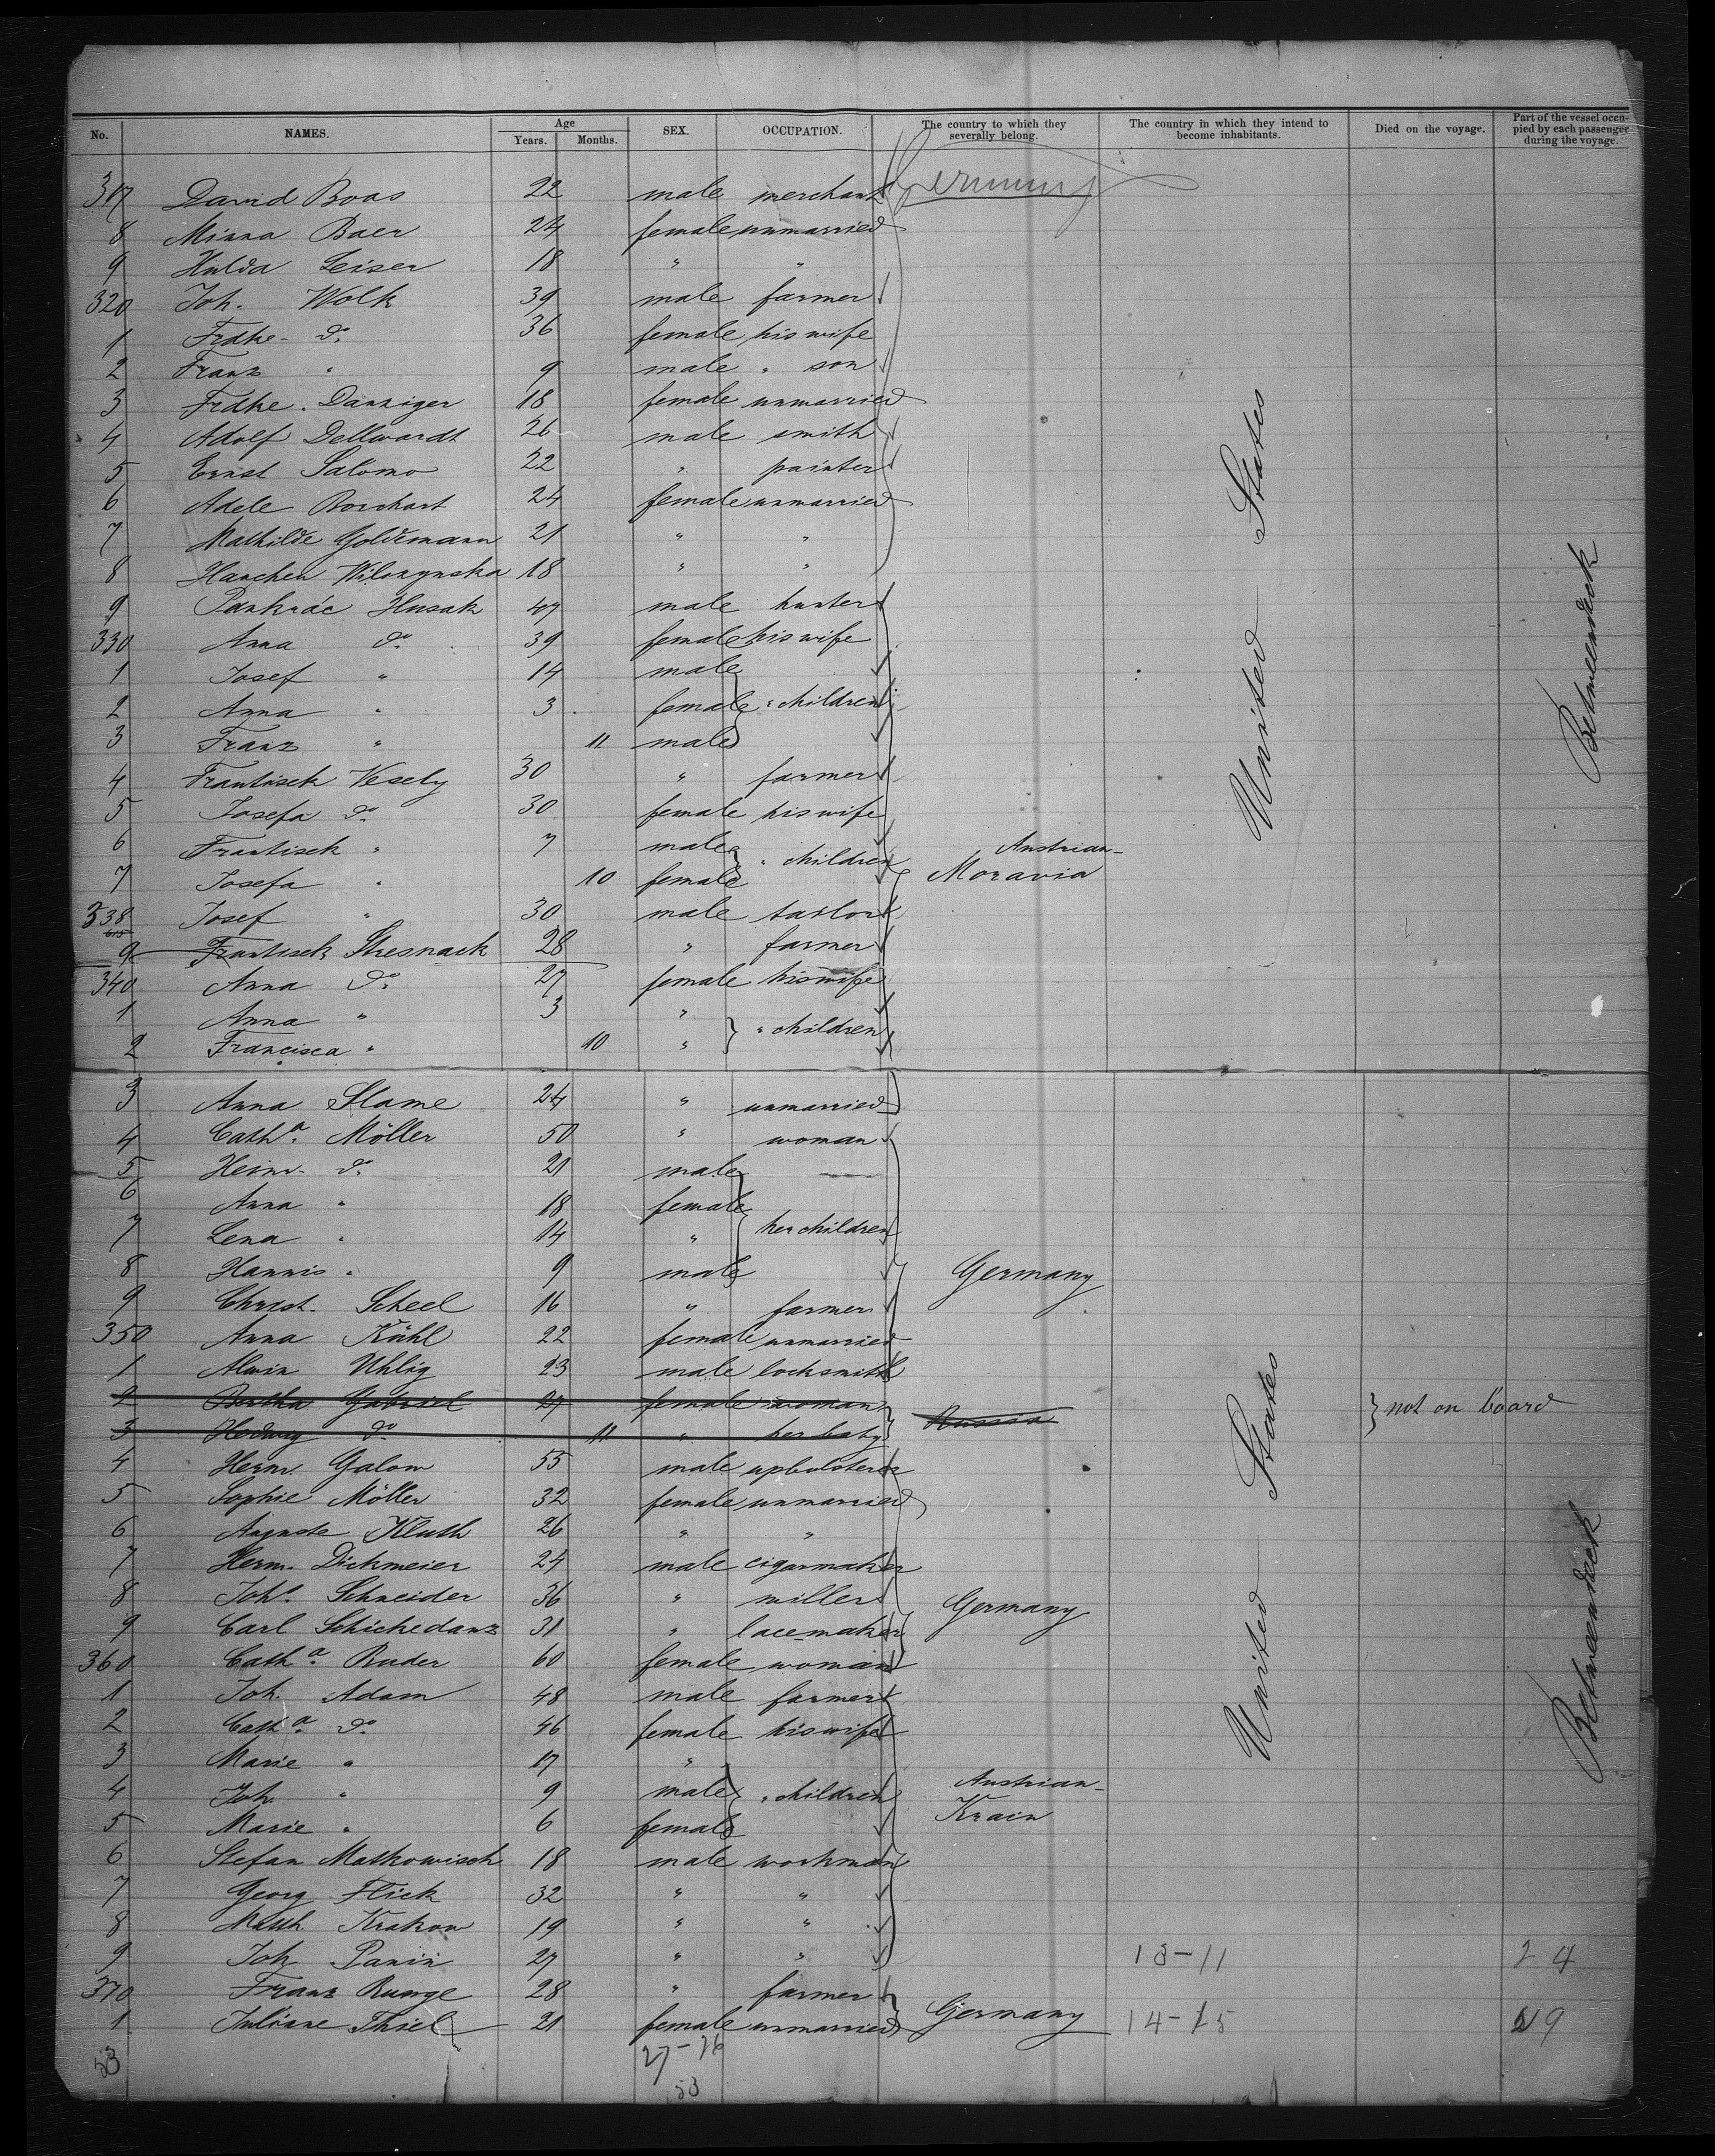 No. NAMES. Age Years. Months. SEX. OCCUPATION. The country to which they severally belong. The country in which they intend to become inhabitants. Died on the voyage. Part of the vessel occupied by each passenger during the voyage.
317 David Boas 22 male merchant Germany
8 Minna Baer 24 female unmarried
9 Hulda Leiser 18 " "
320 Joh. Wolk 39 male farmer
1 Frdke. do. 36 female his wife
2 Franz " 9 male " son
3 Frdke. Danziger 18 female unmarried
4 Adolf Dellwardt 26 male smith
5 Ernst Salomo 22 " painter
6 Adele Borchart 24 female unmarried
7 Mathilde Goldemann 21 " "
8 Hanchen Wilczynska 18 " "
9 Pankrác Husak 47 male hunter
330 Anna do. 39 female his wife
1 Josef " 14 male
2 Anna " 3 female " children
3 Franz " 11 male
4 Frantisek Vesely 30 " farmer
5 Josefa do. 30 female his wife
6 Frantisek " 7 male " children Austrian-
7 Josefa " 10 female Moravia
338 Josef " 30 male tailor
9 Frantisek Stresnack 28 " farmer
340 Anna do. 27 female his wife
1 Anna " 3 " " children
2 Francisca " 10 "
United States
Betweendeck
3 Anna Slame 24 " unmarried
4 Catha. Möller 50 " woman
5 Heinr. do. 21 male
6 Anna " 18 female
7 Lena " 14 " her children
8 Hannis " 9 male Germany
9 Christ. Scheel 16 " farmer
350 Anna Kühl 22 female unmarried
1 Alwin Uhlig 23 male locksmith
2 Bertha Gabriel 27 female woman Russia not on board
3 Hedwig do. 11 " her baby
4 Herm. Galow 55 male upholsterer
5 Sophie Möller 32 female unmarried
6 Auguste Kluth 26 " "
7 Herm. Dickmeier 24 male cigarmaker
8 Johs. Schneider 36 " miller Germany
9 Carl Schickedanz 31 " lace-maker
360 Catha. Ruder 60 female woman
1 Joh. Adam 48 male farmer
2 Catha. do. 46 female his wife
3 Marie " 17 "
4 Joh. " 9 male " children Austrian-
5 Marie " 6 female Krain
6 Stefan Matkowisch 18 male workman
7 Georg Flick 32 " "
8 Math. Krakow 19 " "
9 Joh. Panin 27 " " 13-11 24
370 Franz Runge 28 " farmer
1 Juliane Thiel 21 female unmarried Germany 14-15 29
United States
Betweendeck
53 27-26
53